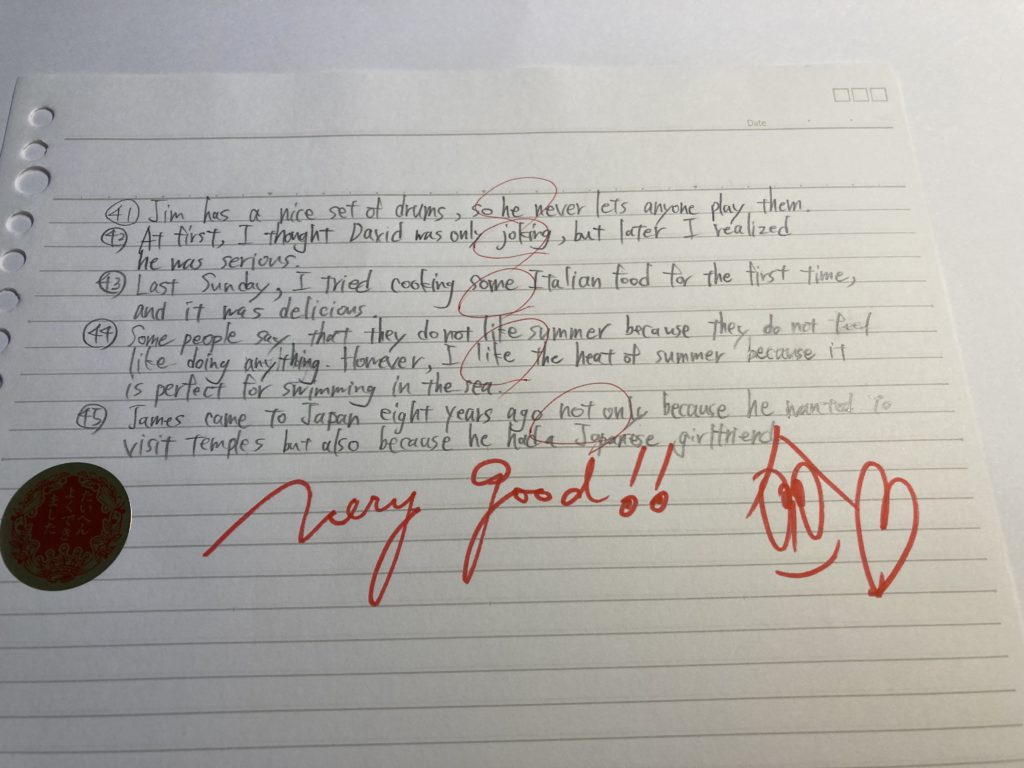 Date
(41) Jim has a nice set of drums, so he never lets anyone play them.
(42) At first, I thought David was only joking, but later I realized
he was serious.
(43) Last Sunday, I tried cooking some Italian food for the first time,
and it was delicious.
(44) Some people say that they do not like summer because they do not feel
like doing anything. However, I like the heat of summer because it
is perfect for swimming in the sea.
(45) James came to Japan eight years ago not only because he wanted to
visit temples but also because he had a Japanese girlfriend
very good!!
たいへん
よくでき
ました